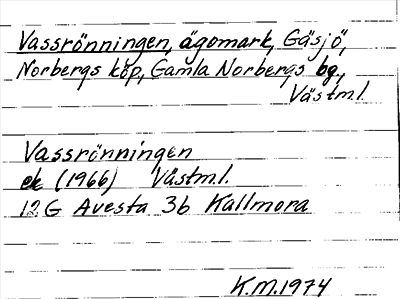 Vassrönningen, ägomark, Gäsjö,
Norbergs köp, Gamla Norbergs bg.,
Västml.
Vassrönningen
ek (1966) Västml.
12G Avesta 3b Kallmora
K.M.1974